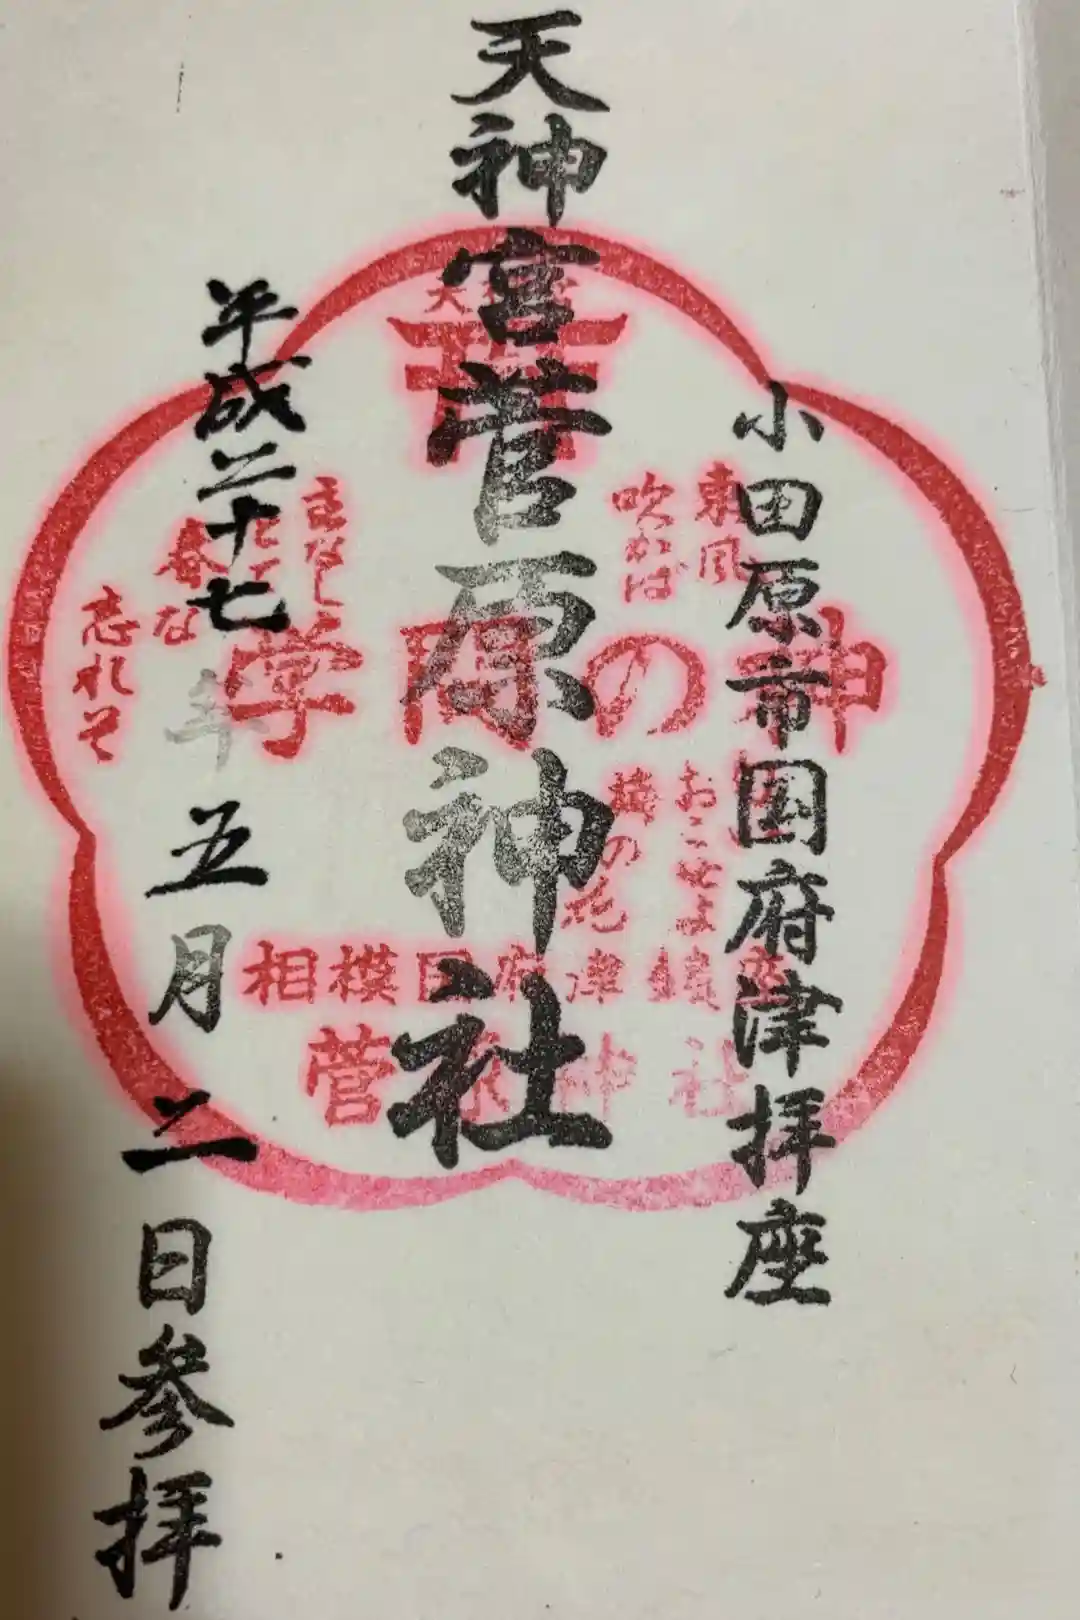 小田原市国府津拝座
天神宮菅原神社
平成二十七年五月二日参拝
学問の神
東風
吹かば
おこせよ
梅の花
主なし
とて
春な
忘れそ
相模国府津鎮座
菅原神社